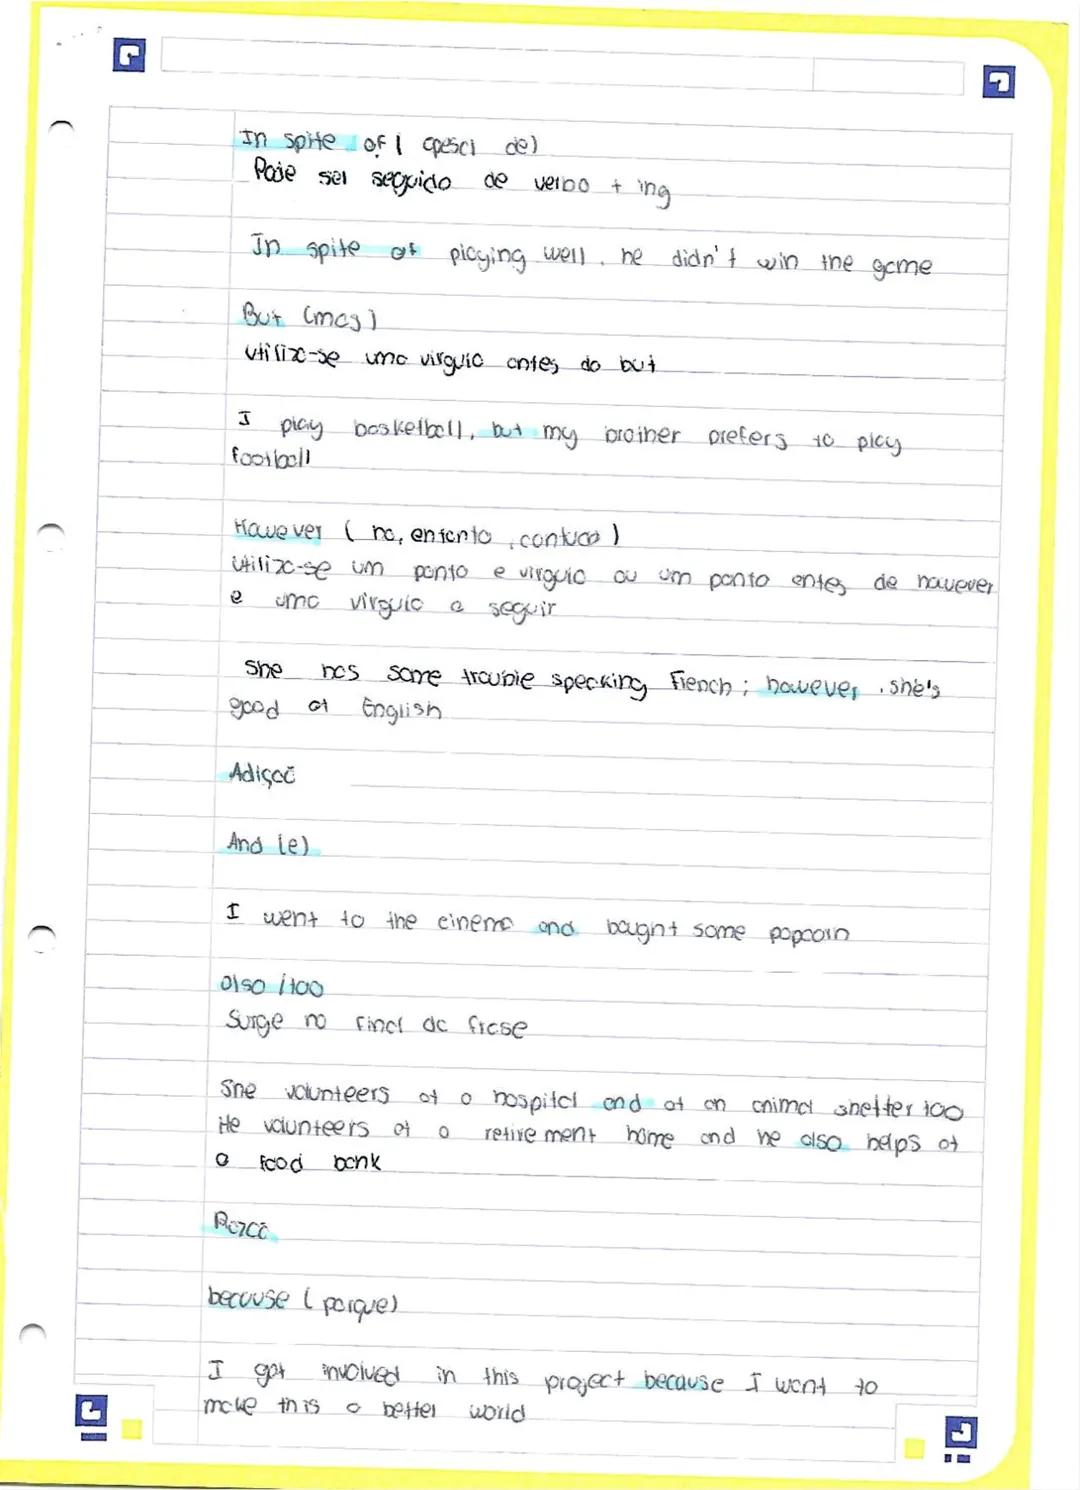 In spite of ( apesar de)
Pode ser seguido de verbo + ing
In spite of playing well, he didn't win the game
But (mas)
Utiliza-se uma virgula antes do but
I play basketball, but my brother prefers to play
football
However ( no, entanto, contudo )
Utiliza-se um ponto e virgula ou um ponto antes de however
e uma virgula a seguir
She has some trouble speaking French ; however, she's
good at English
Adição
And (e)
I went to the cinema and bought some popcorn
also / too
Surge no final da frase
She volunteers at a hospital and at an animal shelter too
He volunteers at a retirement home and he also helps at
a food bank
Razão
because ( porque)
I got involved in this project because I want to
make this a better world